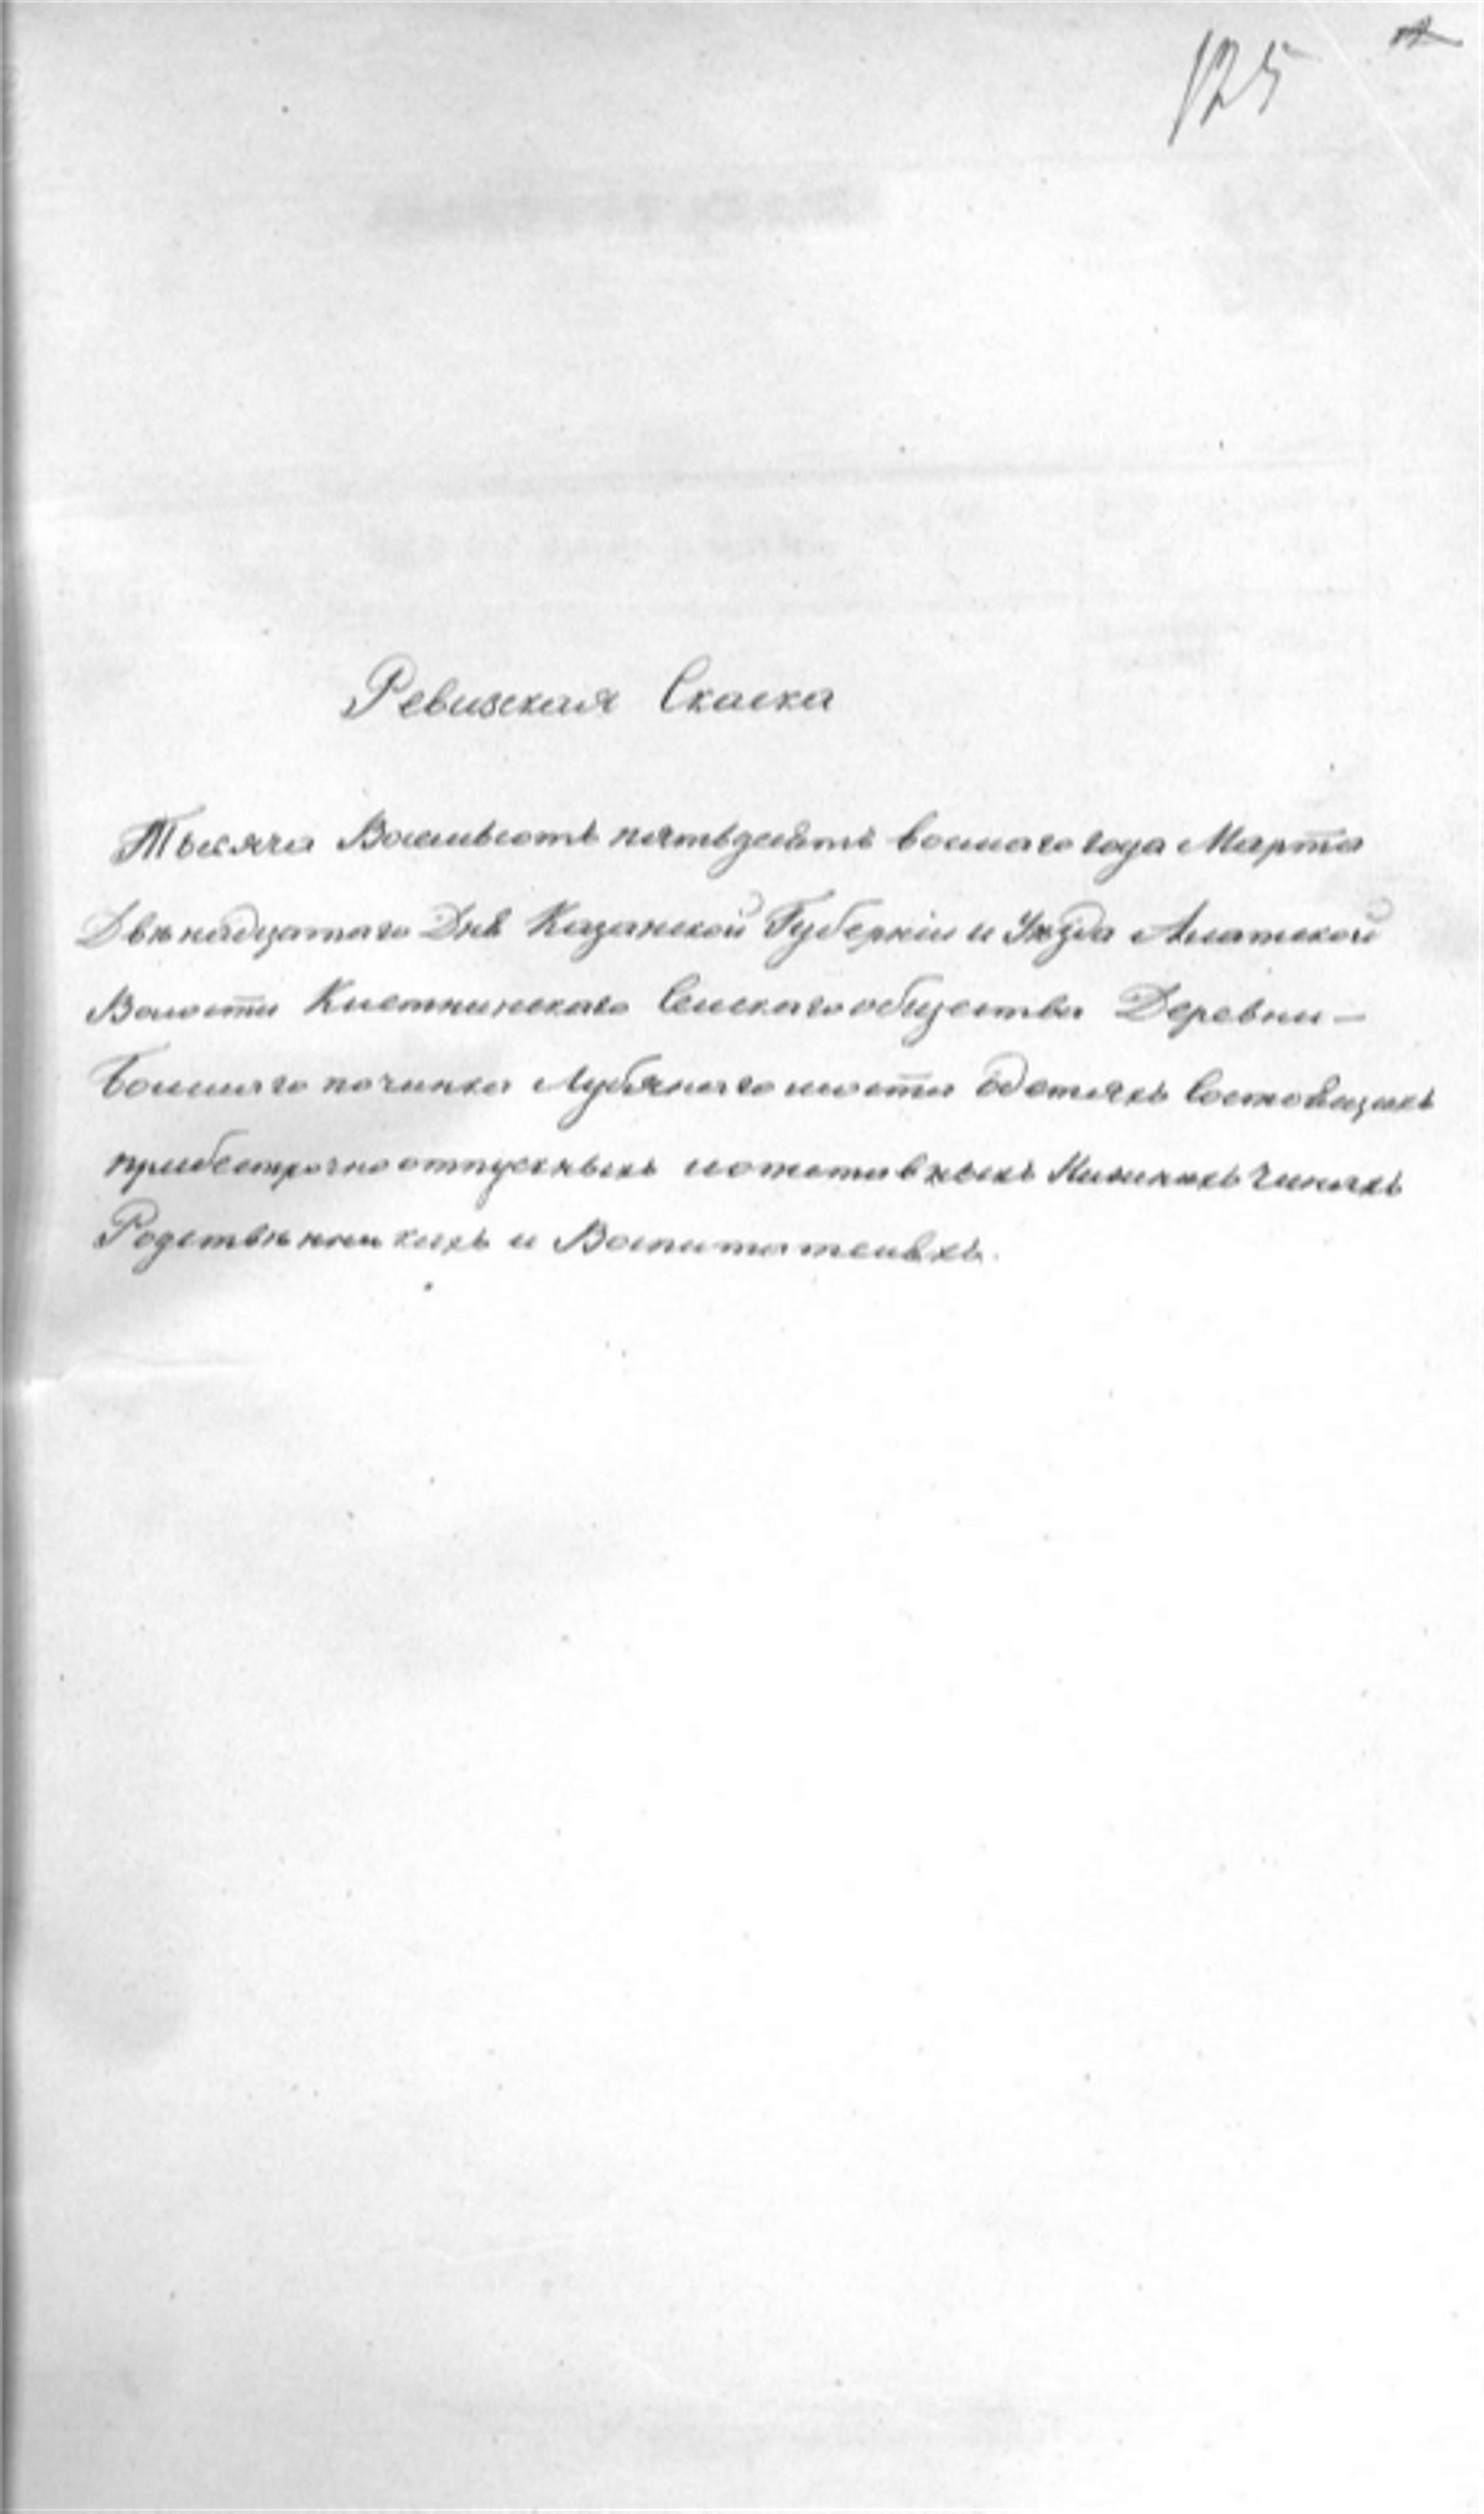 125
Ревизская Скаска
Тысяча Восемьсотъ пятьдесятъ восмаго года Марта
Двѣнадцатаго Дня Казанской Губерніи и Уѣзда Алатской
Волости Селскаго общества Деревни —
Болшаго починка Лубянаго одетяхъ Состоящихъ
прибестрочноотпускныхъ Нижнихъ Чинахъ
Родствѣнникихъ и Воспитателяхъ.